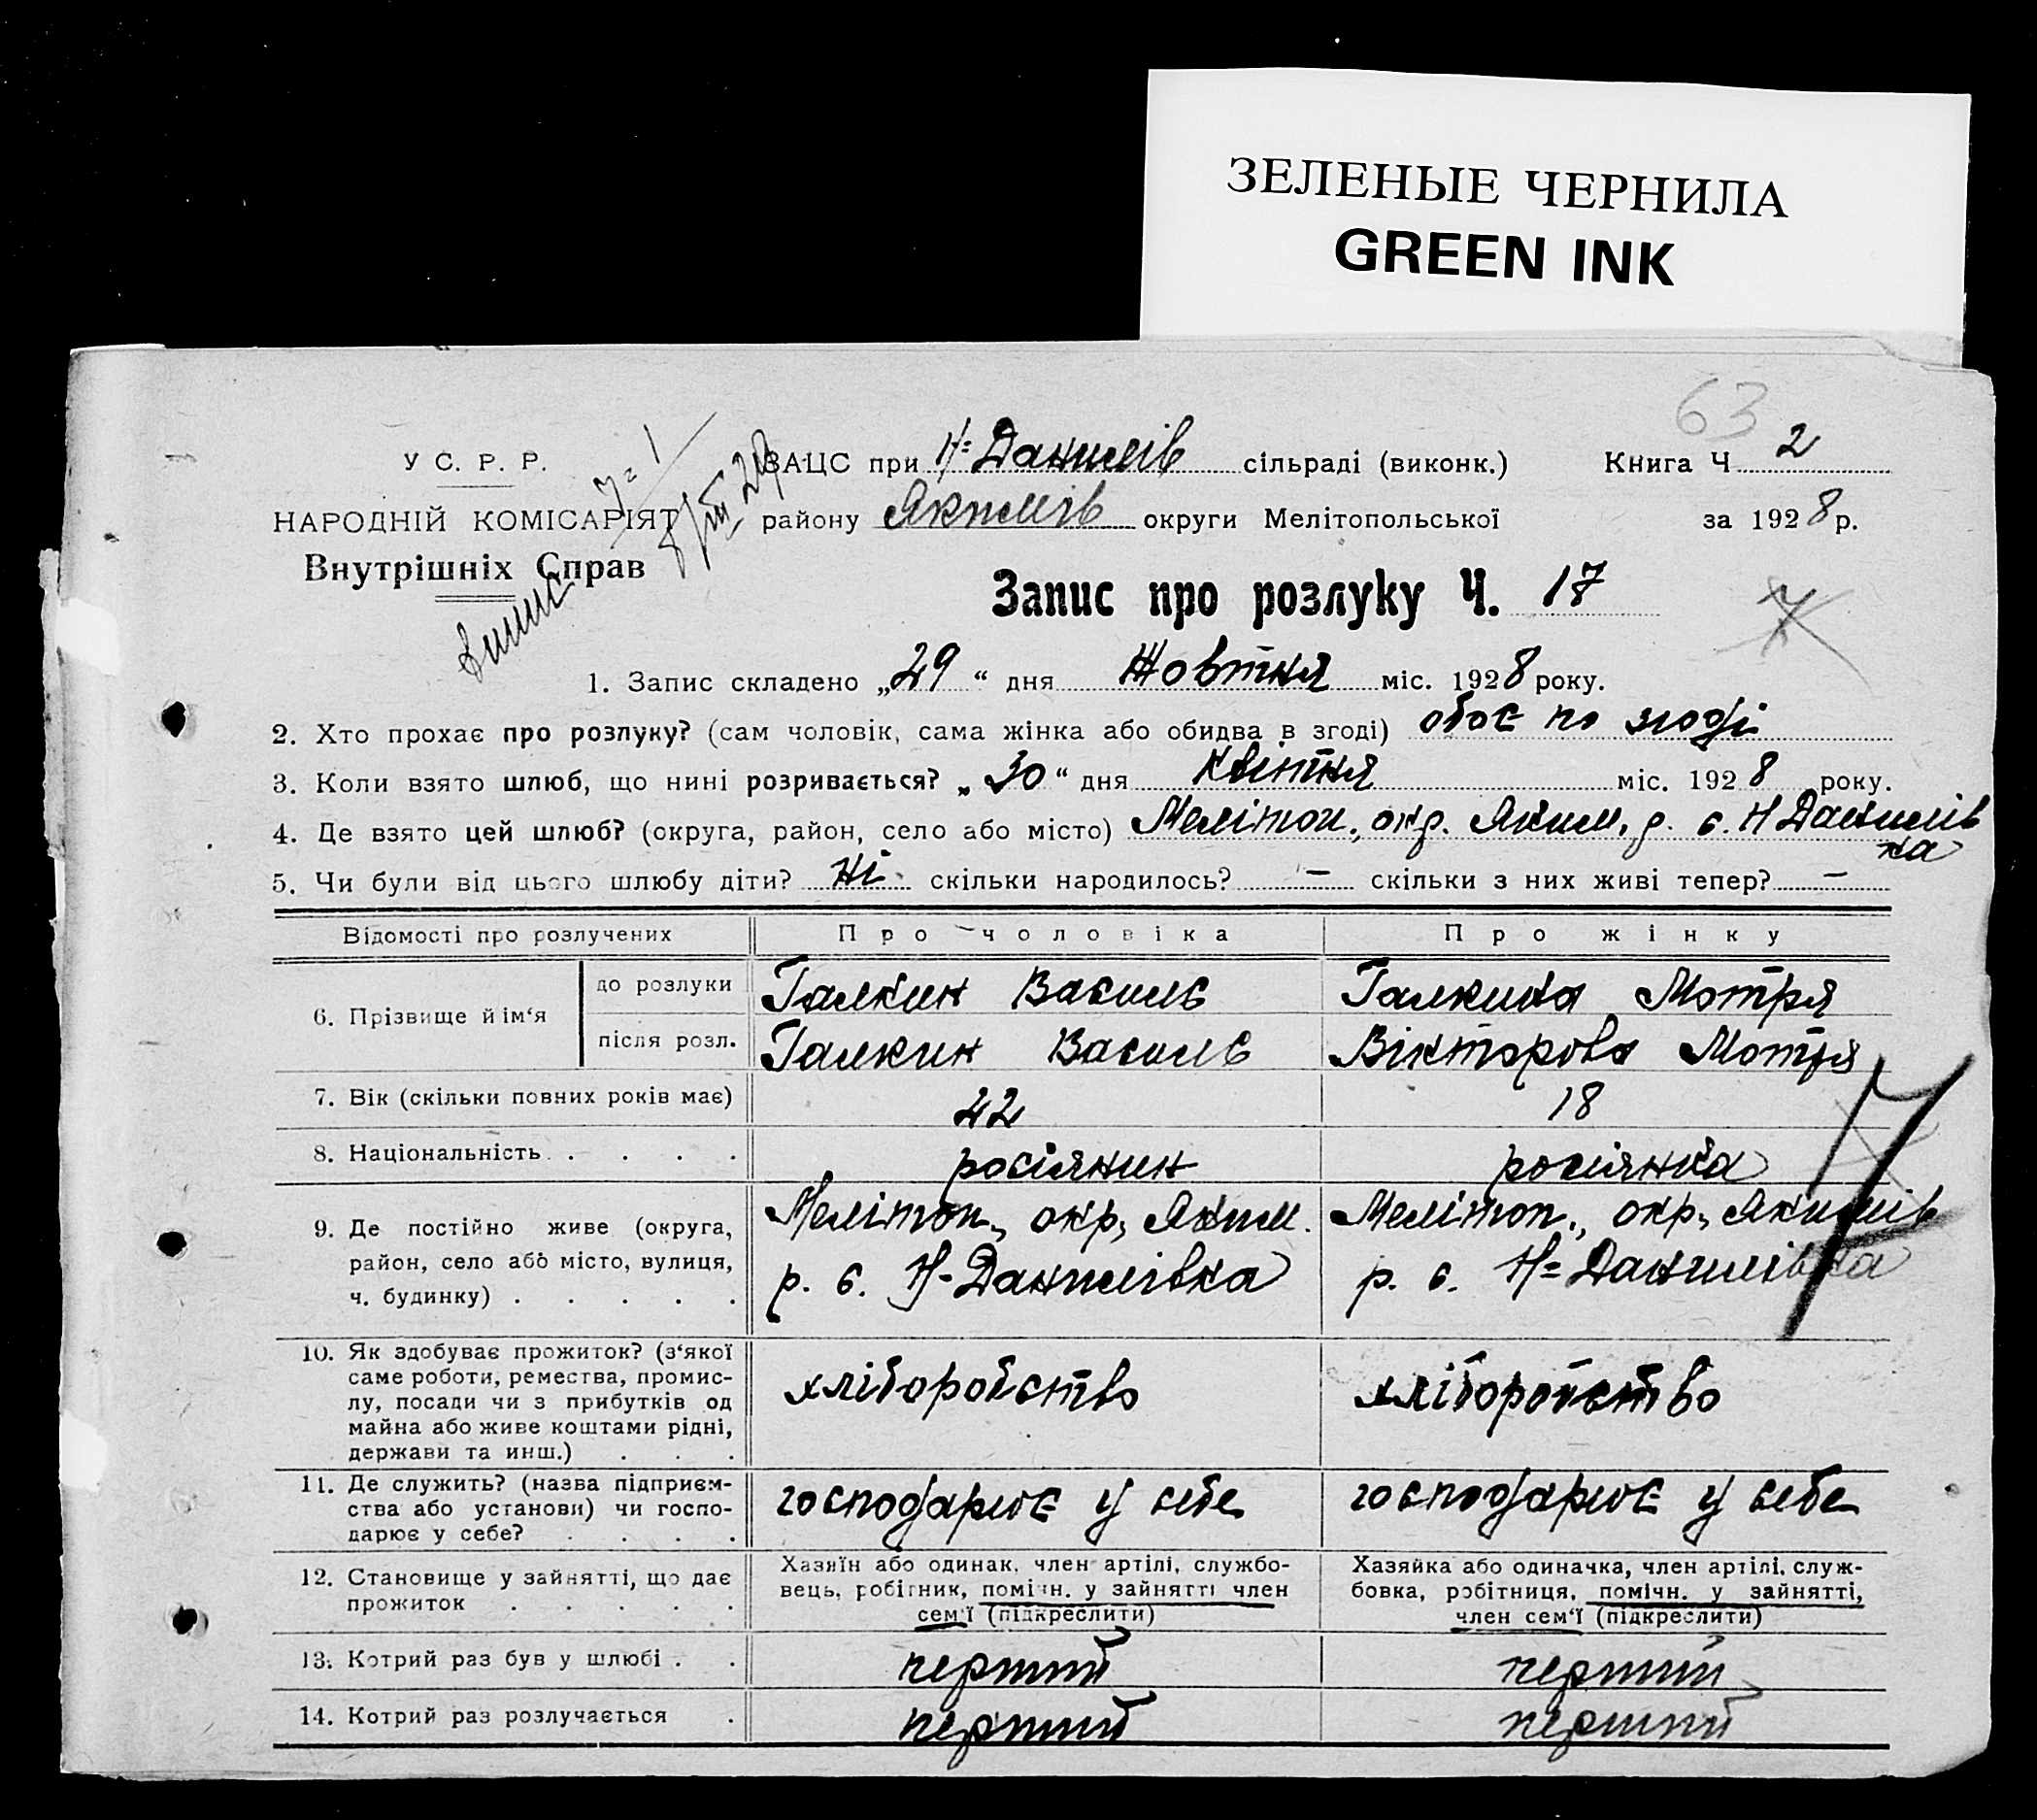 ЗЕЛЕНЫЕ ЧЕРНИЛА
GREEN INK
63
У С. Р. Р.
НАРОДНІЙ КОМІСАРІЯТ
Внутрішніх Справ
ЗАЦС при Н-Данилів сільраді (виконк.) Книга Ч 2
району Якимів округи Мелітопольської за 1928 р.
Запис про розлуку Ч. 17
7
1. Запис складено „29“ дня Жовтня міс. 1928 року.
2. Хто прохає про розлуку? (сам чоловік, сама жінка або обидва в згоді) обоє по згоді
3. Коли взято шлюб, що нині розривається? „30“ дня Квітня міс. 1928 року.
4. Де взято цей шлюб? (округа, район, село або місто) Мелітоп. окр. Яким. р. с. Н Данилів
ка
5. Чи були від цього шлюбу діти? Ні скільки народилось? — скільки з них живі тепер? —
Відомості про розлучених Про чоловіка Про жінку
6. Прізвище й ім‘я до розлуки Галкин Василь Галкина Мотря
після розл. Галкин Василь Вікторова Мотря
7. Вік (скільки повних років має) 42 18
8. Національність росіянин росіянка
9. Де постійно живе (округа, Мелітоп., окр, Яким. Мелітоп., окр, Якимів
район, село або місто, вулиця, р. с. Н-Данилівка р. с. Н=Данилівка
ч. будинку)
7
10. Як здобуває прожиток? (з‘якої
саме роботи, ремества, промис-
лу, посади чи з прибутків од хліборобство хліборобство
майна або живе коштами рідні,
держави та инш.)
11. Де служить? (назва підприєм-
ства або установи) чи госпо- господарює у себе господарює у себе
дарює у себе?
12. Становище у зайнятті, що дає прожиток
Хазяїн або одинак, член артілі, службо-
вець, робітник, помічн. у зайнятті член
сем‘ї (підкреслити)
Хазяйка або одиначка, член артілі, служ-
бовка, робітниця, помічн. у зайнятті,
член сем‘ї (підкреслити)
13. Котрий раз був у шлюбі перший перший
14. Котрий раз розлучається перший перший